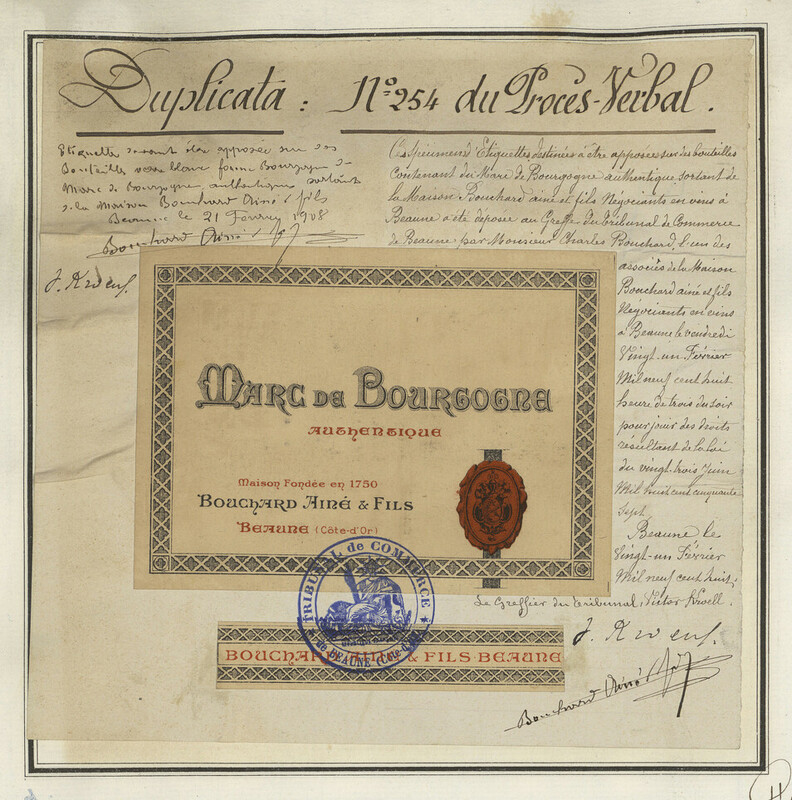 Duplicata : N° 254 du Procès-Verbal.
Etiquette devant être apposée sur des
Bouteilles verre blanc forme Bourgogne de
Marc de Bourgogne authentique sortant
de la Maison Bouchard Ainé & fils
Beaune le 21 Février 1908
Bouchard Ainé & fils
Ce Spécimen d'Etiquettes destinées à être apposées sur des bouteilles
Contenant du Marc de Bourgogne authentique sortant de
la Maison Bouchard ainé et fils Négociants en vins à
Beaune a été déposée au Greffe du tribunal de Commerce
de Beaune par Monsieur Charles Bouchard, l'un des
associés de la Maison
Bouchard ainé et fils
Négociants en vins
à Beaune le vendredi
Vingt-un Février
Mil neuf cent huit
heure de trois du soir
pour jouir des droits
résultant de la loi
du vingt trois Juin
Mil huit cent cinquante
sept.
Beaune le
Vingt-un Février
Mil neuf cent huit.
Le Greffier du Tribunal, Victor
MARC DE BOURGOGNE
AUTHENTIQUE
Maison Fondée en 1750
BOUCHARD AINÉ & FILS
BEAUNE (Côte-d'Or)
TRIBUNAL de COMMERCE
de BEAUNE (Côte-d'Or)
BOUCHARD AINÉ & FILS BEAUNE
Bouchard Ainé & fils